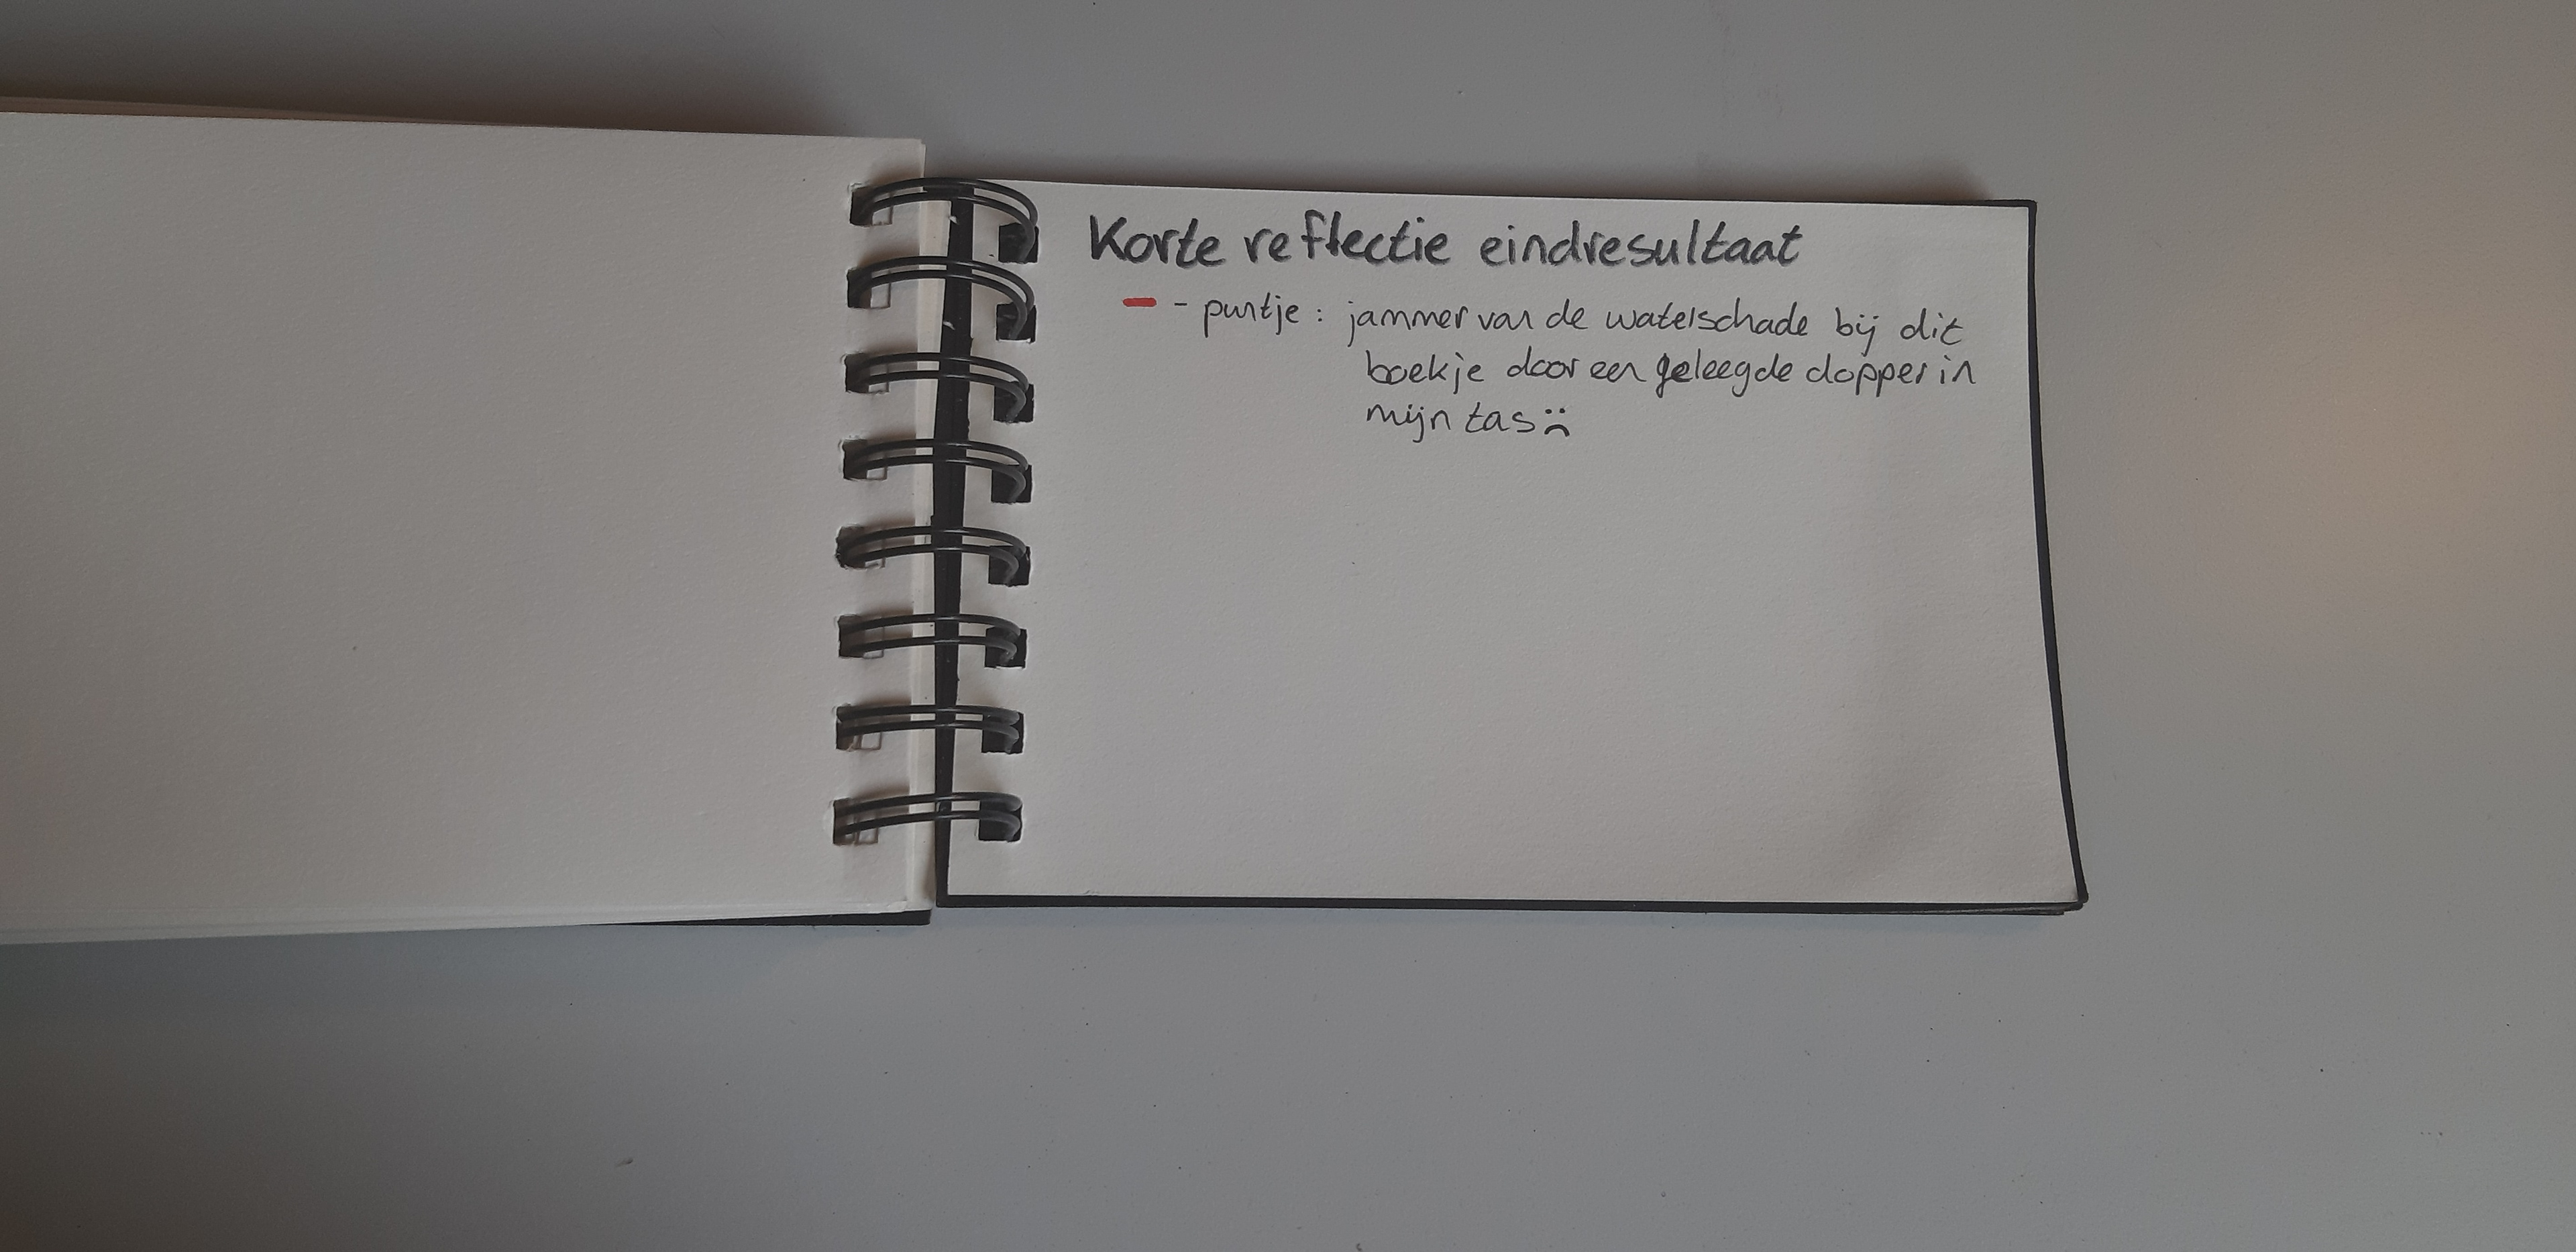 Korte reflectie eindresultaat
- - puntje : jammer van de waterschade bij dit
boekje door een geleegde dopper in
mijn tas :(